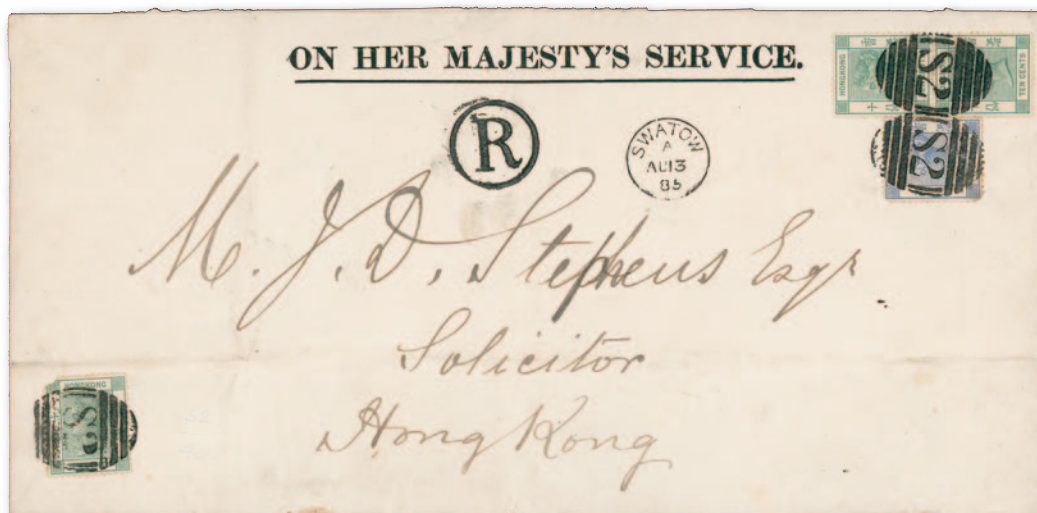 ON HER MAJESTY'S SERVICE.
HONGKONG
TEN CENTS
S2
S2
R
SWATOW
A
AU 13
85
M. J. D. Stephens Esqr
Solicitor
Hong Kong
HONGKONG
S2